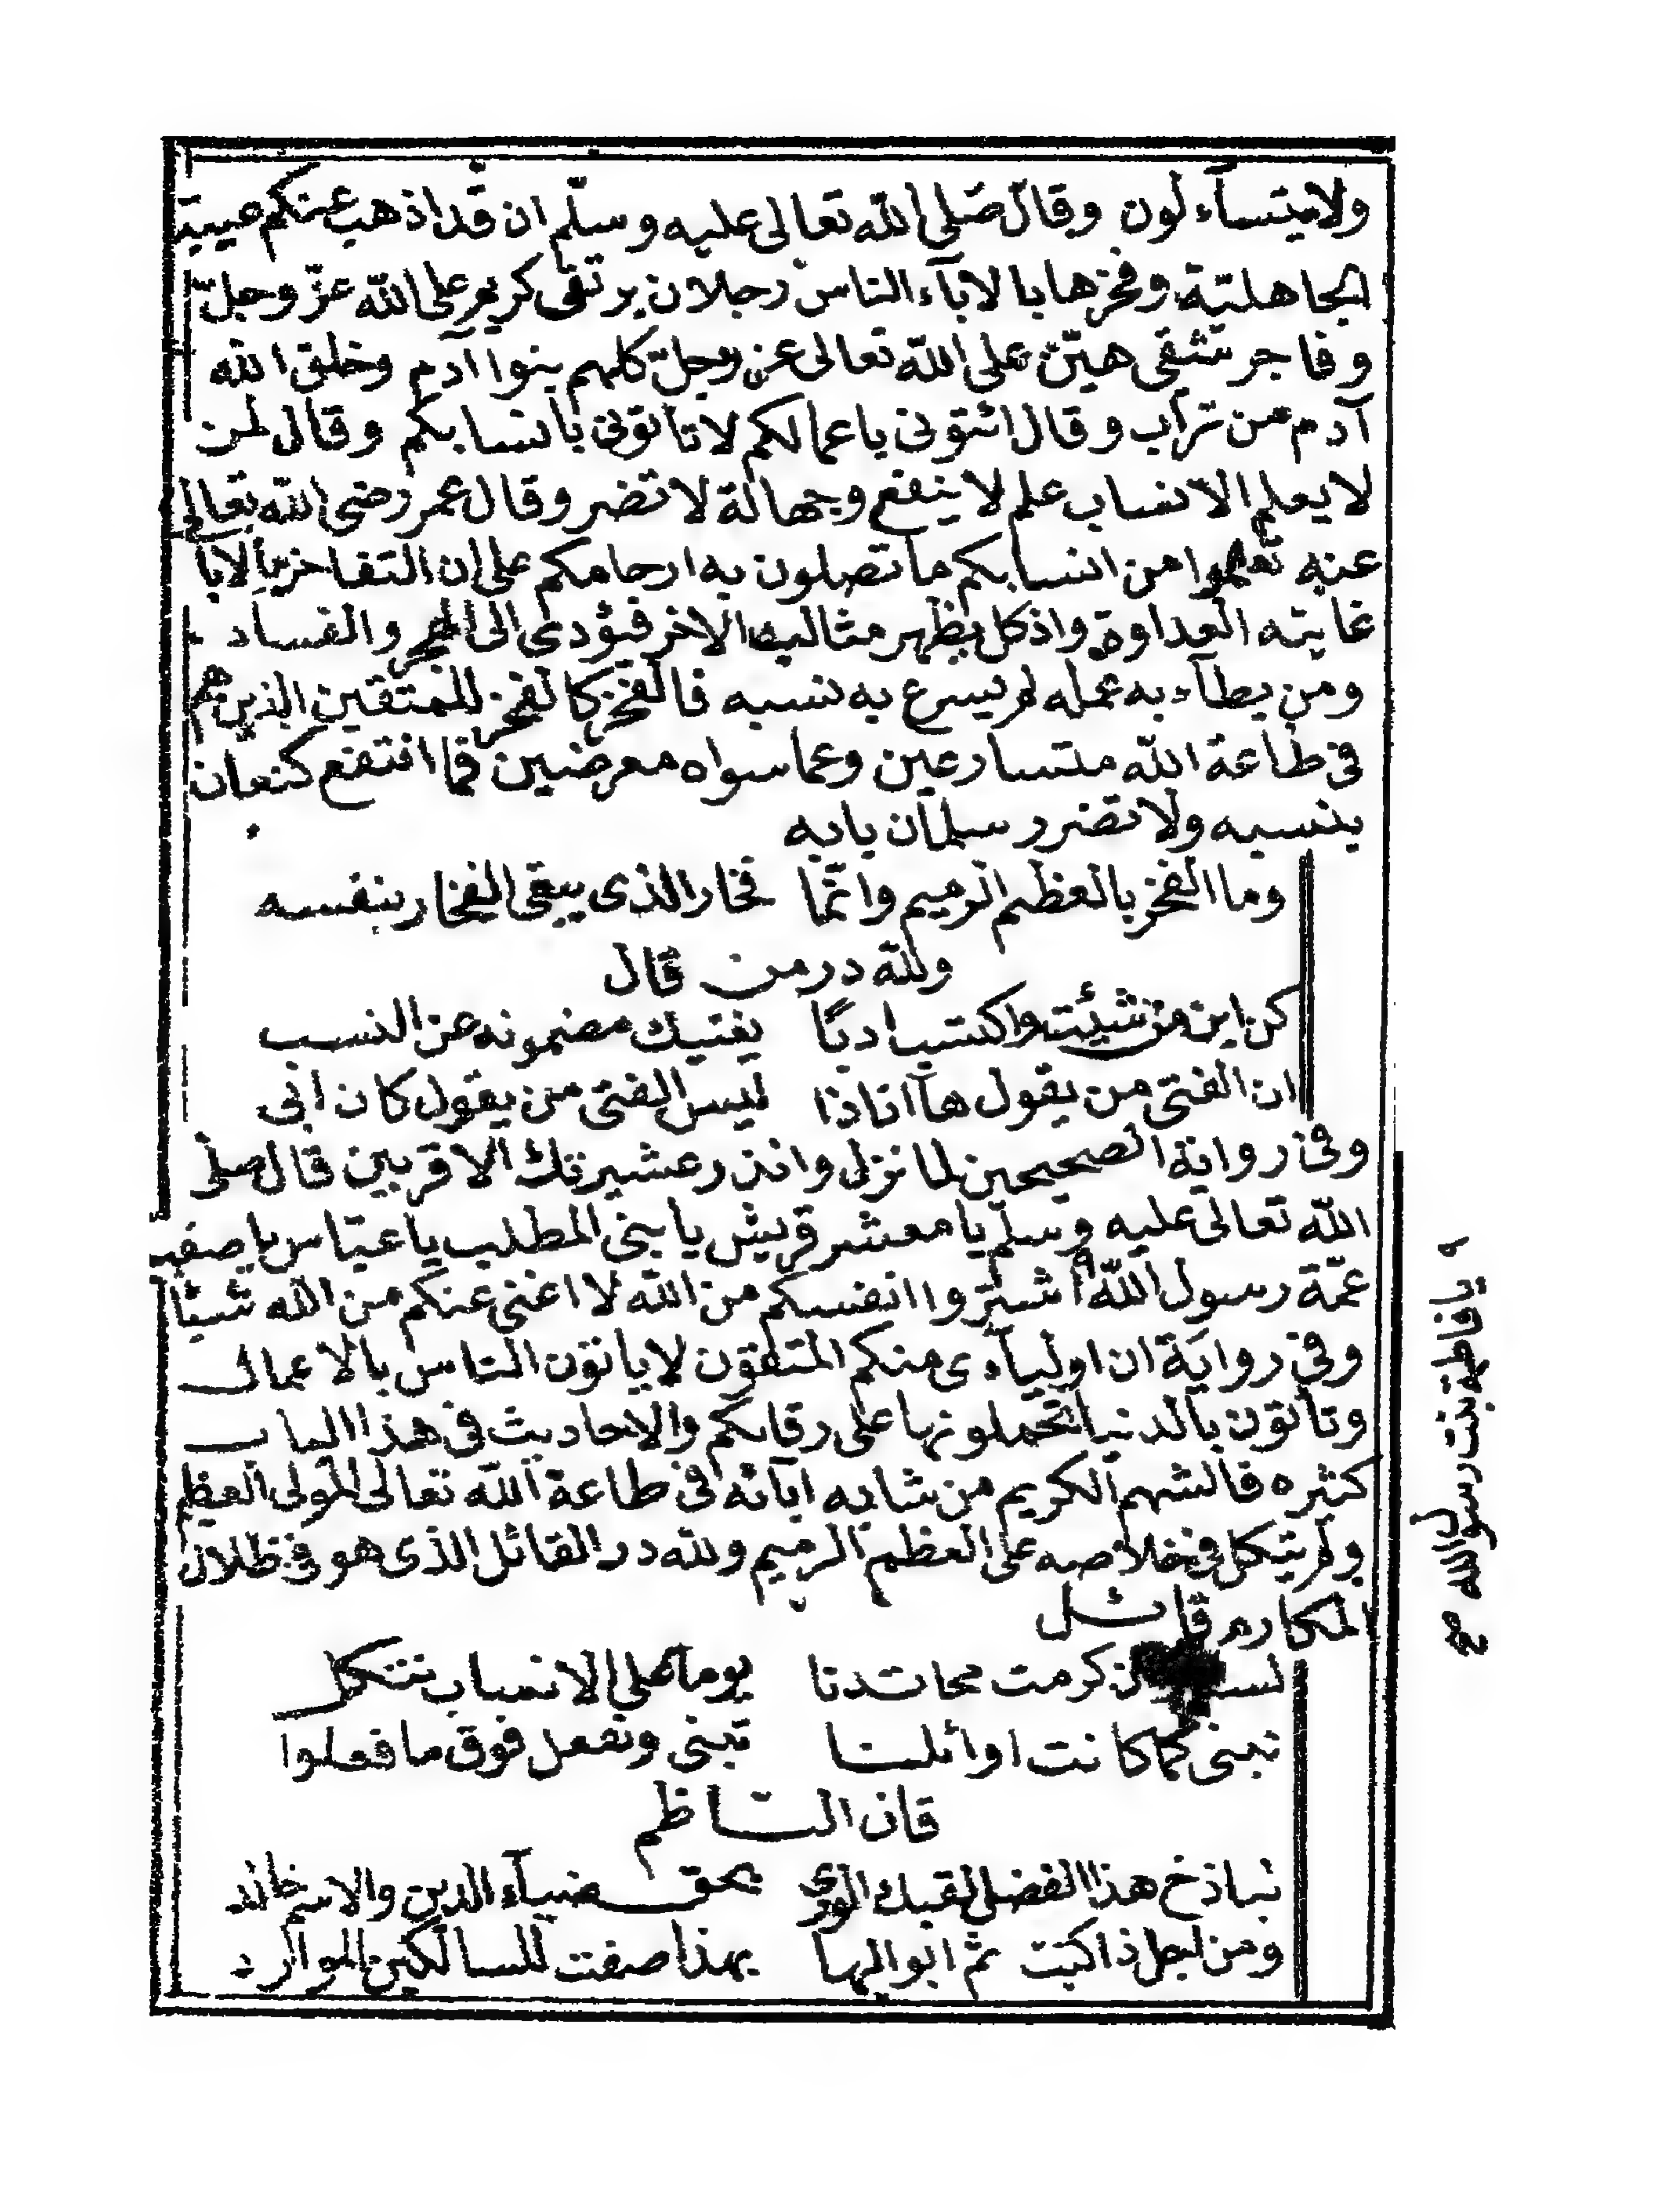 ولا يتسآءلون وقال صلى الله تعالى عليه وسلّم ان قد اذهب عنكم عيبية
الجاهليّة وفخرها بالاباء الناس رجلان بر تقى كريم على الله عزّ وجلّ
وفاجر شقى هيّن على الله تعالى عز وجلّ كلهم بنوا آدم وخلق الله
آدم من تراب وقال ائتونى باعمالكم لا تاتونى بانسابكم وقال لمن
لا يعلم الانساب علم لا ينفع وجهالة لا تضر وقال عمر رضى الله تعالى
عنه تعلموا من انسابكم ما تصلون به ارحامكم على ان التفاخر بالابا
غايته العداوة واذ كل يظهر مثالب الاخر فيؤدى الى الهجر والفساد
ومن بطآء به عمله لم يسرع به نسبه فالفخر كالفخر للمتقين الذين هم
فى طاعة الله متسارعين وعما سواه معرضين فما انتفع كنعان
بنسبه ولا تضرر سلمان بابه
وما الفخر بالعظم الرميم وانّما فخار الذى يبقى الفخار بنفسه
ولله در من قال
كن ابن من شئت واكتسب ادبًا يغنيك مضمونه عن النسب
ان الفتى من يقول ها انا ذا ليس الفتى من يقول كان ابى
وفى رواية الصحيحين لما نزل وانذر عشيرتك الاقربين قال صلى
الله تعالى عليه وسلم يا معشر قريش يا بنى المطلب يا عبّاس يا صفيه
عمّة رسول الله اشتروا انفسكم من الله لا اغنى عنكم من الله شيئًا
وفى رواية ان اوليآءى منكم المتقون لا ياتون الناس بالاعمال
وتاتون بالدنيا تحملونها على رقابكم والاحاديث فى هذا الباب
كثيره فالشهم الكريم من شابه ابائه فى طاعة الله تعالى المولى العظيم
ولم يتكل فى خلاصه على العظم الرميم ولله در القائل الذى هو فى ظلال
المكارم قائل
كرمت محاتدنا يوما على الانساب نتكل
نبنى كما كانت اوائلنا تبنى ونفعل فوق ما فعلوا
قال الناظم
هذا الفضل الورى بحق ضيآء الدين والاسم خالد
ومن اجل ذا كنيت ثم ابو البها بهذا صفت للسالكين الموارد
يا فاطمة بنت رسول الله صح